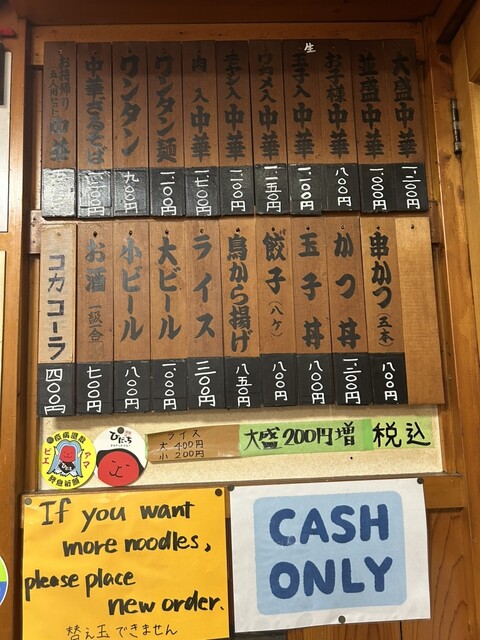 大盛中華 一、二〇〇円
並盛中華 一、〇〇〇円
お子様中華 八〇〇円
生
玉子入中華 一、一〇〇円
ワカメ入中華 一、一五〇円
モヤシ入中華
肉入中華 一、七〇〇円
ワンタン麺
ワンタン 九〇〇円
中華ざるそば
お持帰り 中華
串かつ（五本） 八〇〇円
かつ丼
玉子丼 八〇〇円
餃子（八ケ） 八〇〇円
鳥から揚げ 八五〇円
ライス 三〇〇円
大ビール 一、〇〇〇円
小ビール 八〇〇円
お酒 一級一合 七〇〇円
コカコーラ 四〇〇円
ライス
大 400円
小 200円
大盛200円増
税込
疫病退散
アマ
ビエ
ひだっち
If you want
more noodles,
please place
new order.
替え玉できません
CASH
ONLY